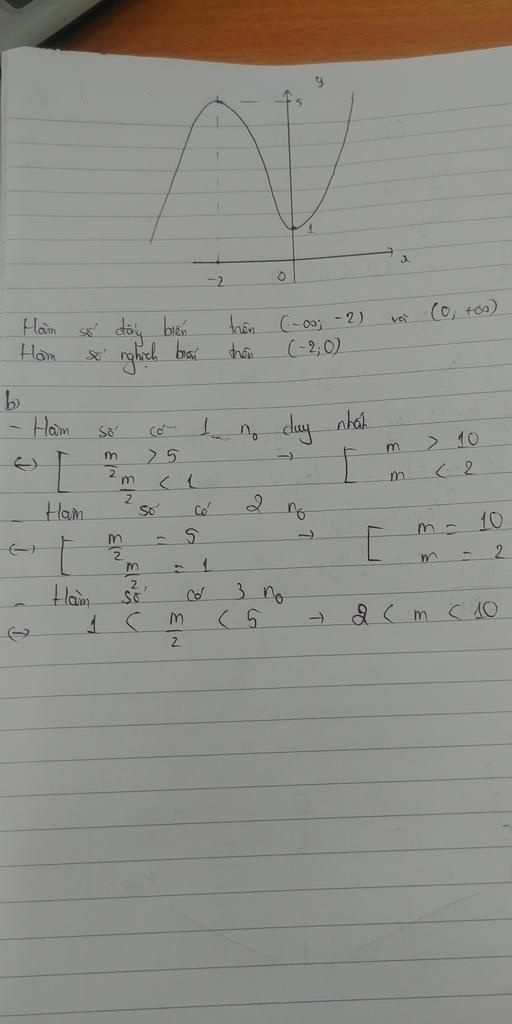 y
5
1
x
-2 0
Hàm số đồng biến trên (-∞; -2) và (0, +∞)
Hàm số nghịch biến trên (-2; 0)
b)
- Hàm số có 1 n₀ duy nhất
<-> [ m/2 > 5 -> [ m > 10
m/2 < 1 m < 2
- Hàm số có 2 n₀
<-> [ m/2 = 5 -> [ m = 10
m/2 = 1 m = 2
- Hàm số có 3 n₀
<-> 1 < m/2 < 5 -> 2 < m < 10